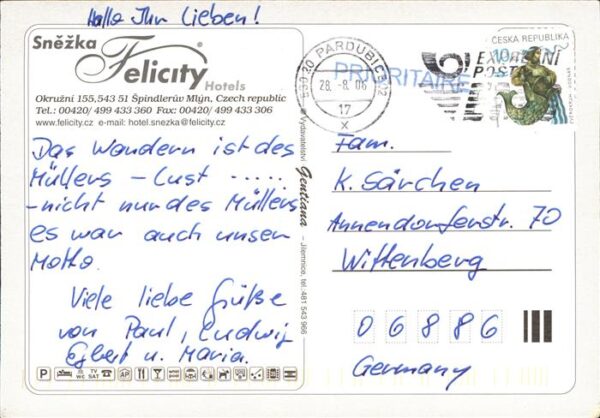 Hallo Ihr Lieben!
Sněžka
Felicity
Hotels
Okružní 155, 543 51 Špindlerův Mlýn, Czech republic
Tel.: 00420/ 499 433 360 Fax: 00420/ 499 433 306
www.felicity.cz e-mail: hotel.snezka@felicity.cz
Das Wandern ist des
Müllers – Lust .....
– nicht nur des Müllers
es war auch unser
Motto.
Viele liebe Grüße
von Paul, Ludwig
Egbert u. Maria.
P
TV
WC SAT
AP
Vydavatelství Gentiana – Jilemnice, tel.: 481 543 966
530 20 PARDUBICE 02
28. -8. 06
17
x
PRIORITAIRE
POST
ČESKÁ REPUBLIKA
10
Fam.
K. Särchen
Annendorferstr. 70
Wittenberg
06886
Germany